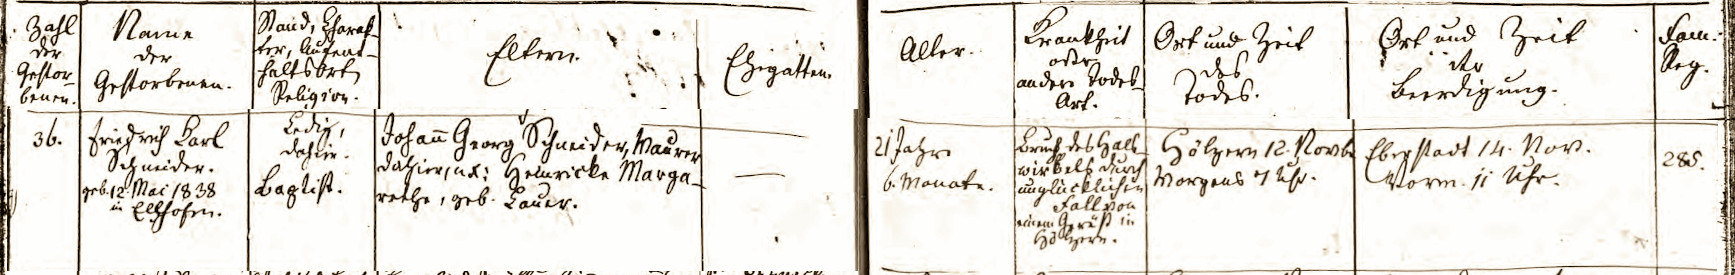 Zahl
der
Gestor-
benen.
Name
der
Gestorbenen.
Stand, Charak-
ter, Aufent-
haltsort,
Religion.
Eltern.
Ehegatten.
Alter.
Krankheit
oder
andere Todes-
Art.
Ort und Zeit
des
Todes.
Ort und Zeit
der
Beerdigung.
Fam.
Reg.
36.
Friedrich Karl
Schneider.
geb. 12. Mai 1838
in Ellhofen.
Ledig,
dahier.
Baptist.
Johann Georg Schneider, Maurer
dahier, u. Heinricke Marga-
rethe, geb. Lauer.
21 Jahre
6. Monate.
Bruch des Hals-
wirbels durch
unglücklichen
Fall von
einem Gerüst in
Hölzern.
Hölzern 12. Novbr
Morgens 7 Uhr.
Eberstadt 14. Nov.
Vorm. 11 Uhr.
285.